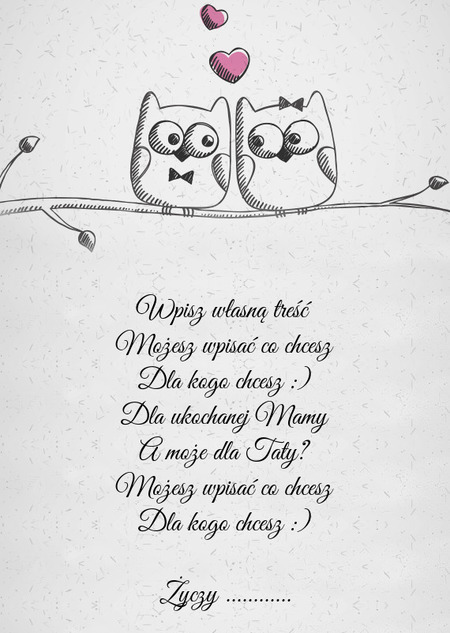 Wpisz własną treść
Możesz wpisać co chcesz
Dla kogo chcesz :)
Dla ukochanej Mamy
A może dla Taty?
Możesz wpisać co chcesz
Dla kogo chcesz :)
Życzy ............